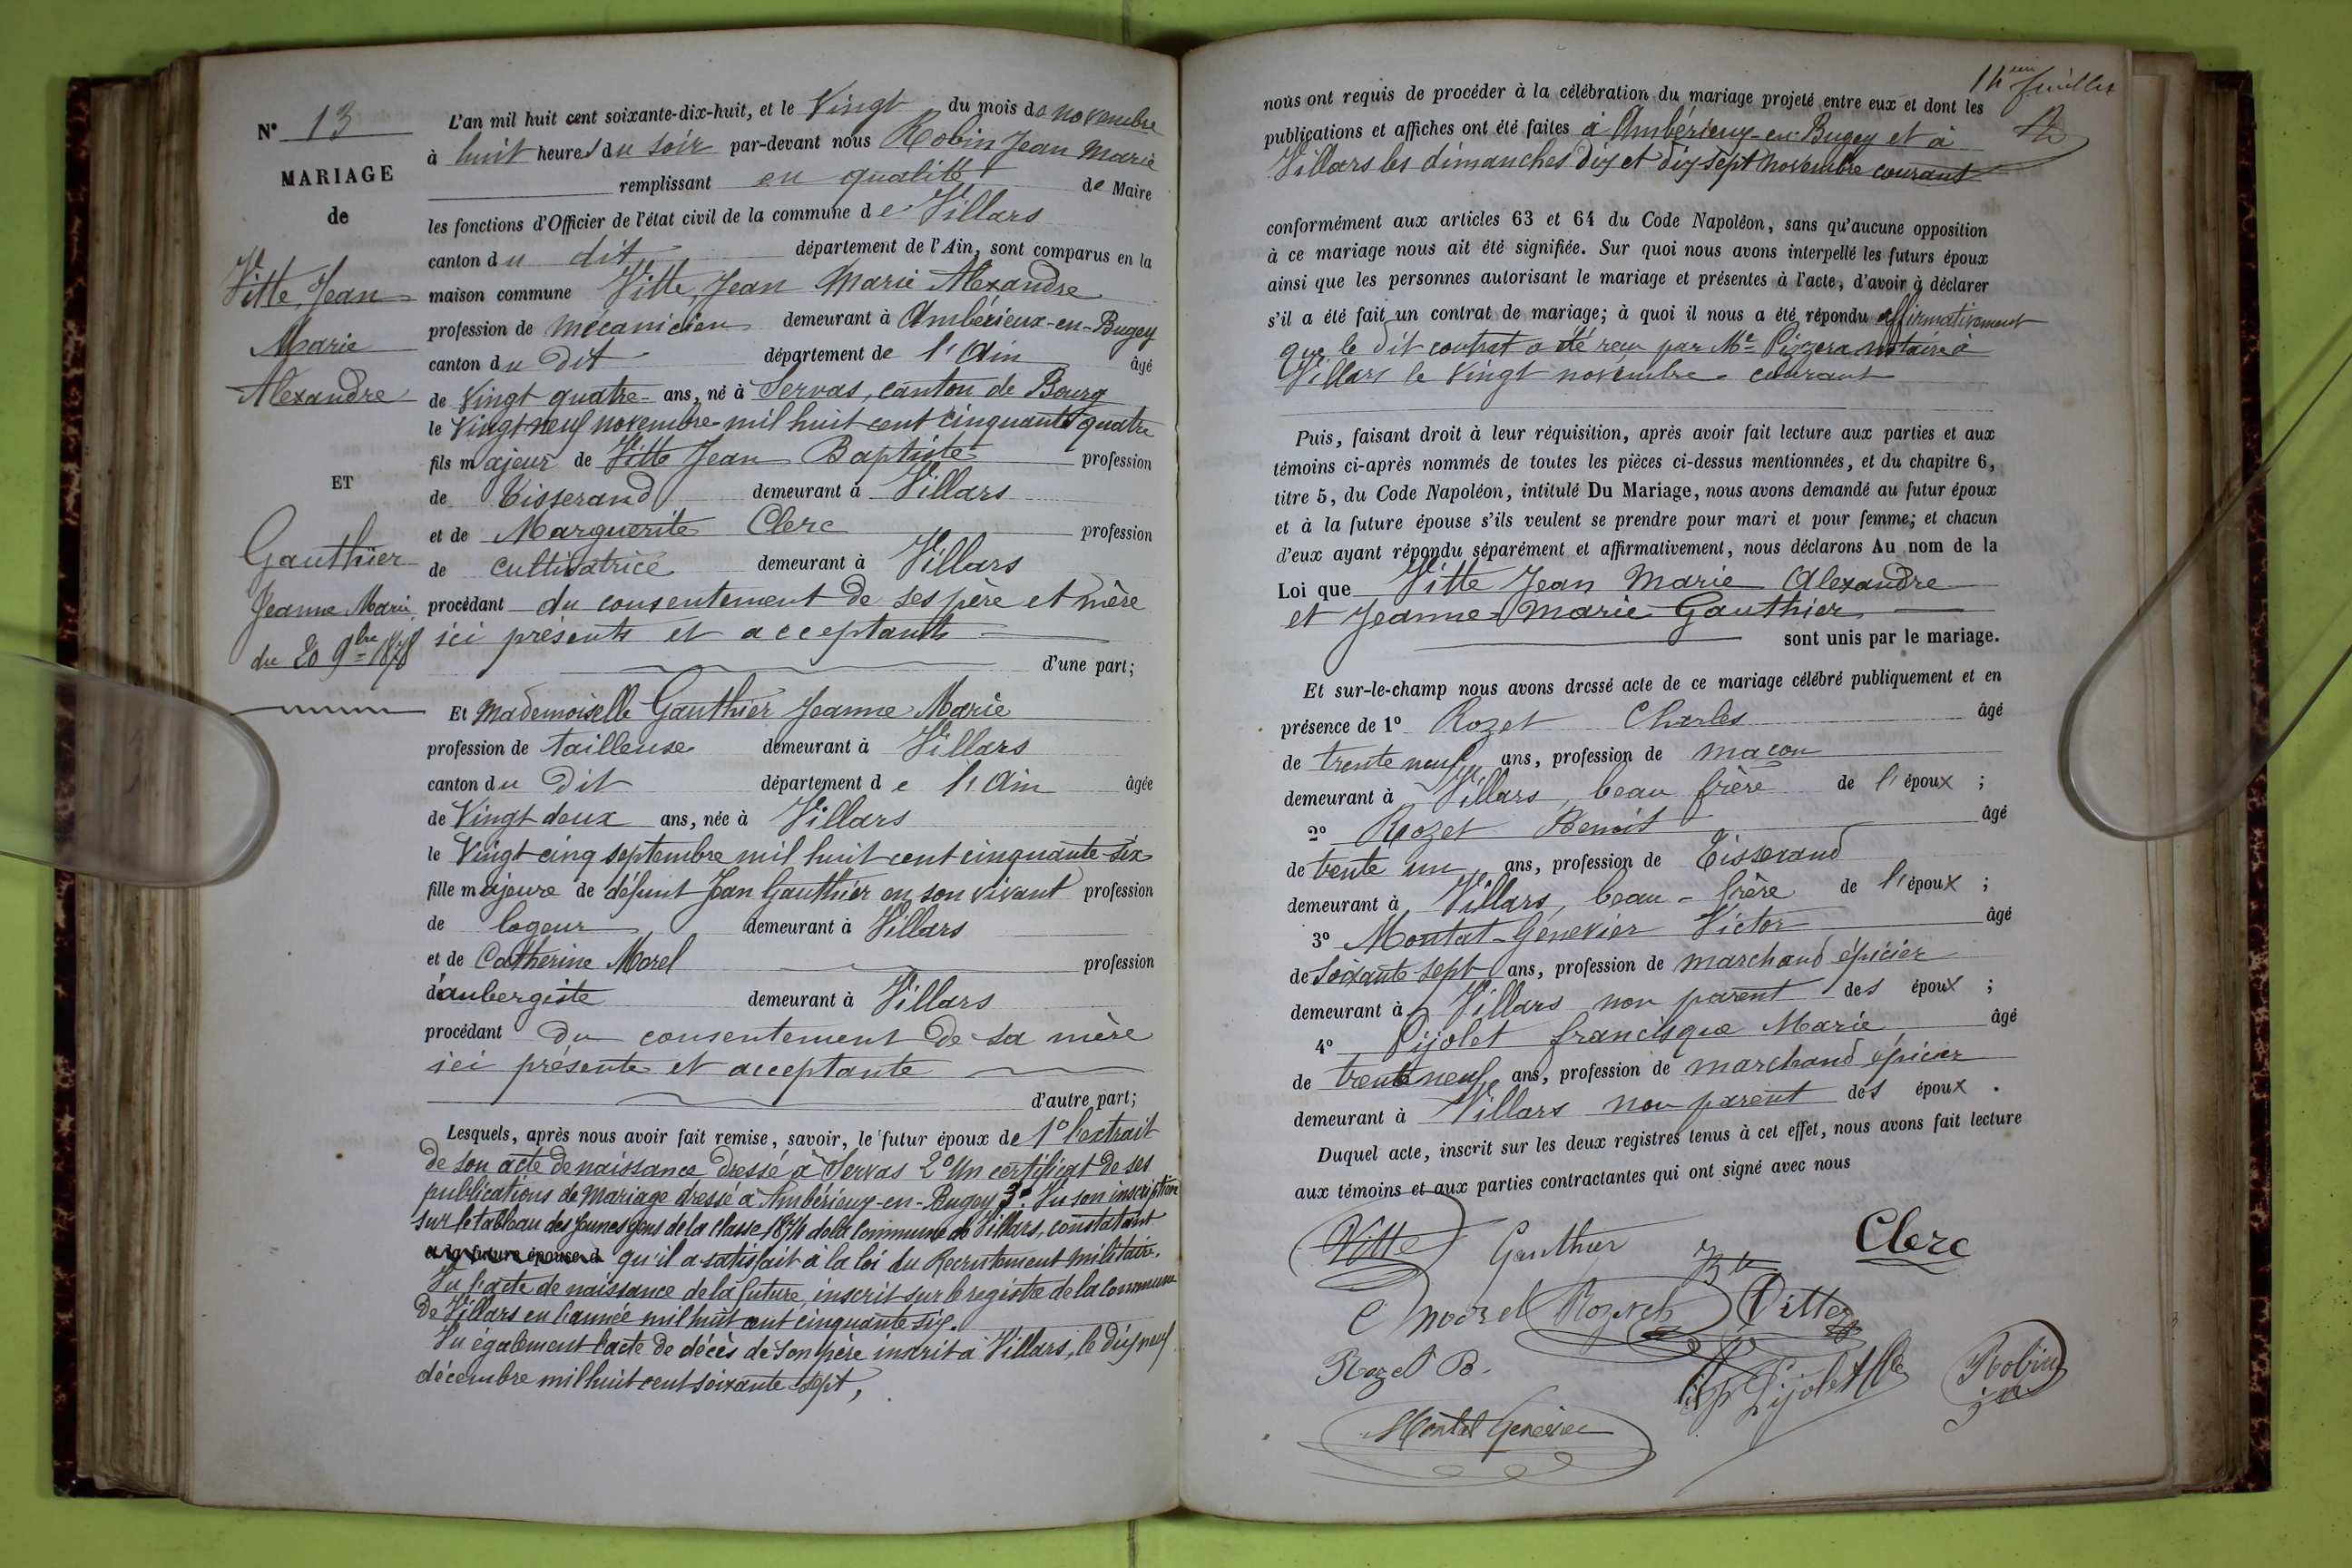 N° 13
MARIAGE
de
Vitte Jean
Marie
Alexandre
ET
Gauthier
Jeanne Marie
du 20 9bre 1878
L'an mil huit cent soixante-dix-huit, et le Vingt du mois de novembre
à huit heures du soir par-devant nous Robin Jean Marie
remplissant en qualité de Maire
les fonctions d'Officier de l'état civil de la commune de Villars
canton du dit département de l'Ain, sont comparus en la
maison commune Vitte, Jean Marie Alexandre
profession de mécanicien demeurant à Ambérieux-en-Bugey
canton du Dit département de l'Ain âgé
de Vingt quatre ans, né à Servas, canton de Bourg
le Vingt neuf novembre mil huit cent cinquante quatre
fils majeur de Vitte Jean Baptiste profession
de Tisserand demeurant à Villars
et de Marguerite Clerc profession
de cultivatrice demeurant à Villars
procédant du consentement de ses père et mère
ici présents et acceptants
d'une part;
Et Mademoiselle Gauthier Jeanne Marie
profession de tailleuse demeurant à Villars
canton du Dit département de l'Ain âgée
de Vingt deux ans, née à Villars
le Vingt cinq septembre mil huit cent cinquante-six
fille majeure de défunt Jean Gauthier en son vivant profession
de logeur demeurant à Villars
et de Catherine Morel profession
d'aubergiste demeurant à Villars
procédant du consentement de sa mère
ici présente et acceptante
d'autre part;
Lesquels, après nous avoir fait remise, savoir, le futur époux de 1° l'extrait
de son acte de naissance dressé à Servas 2° Un certificat de ses
publications de Mariage dressé à Ambérieux-en-Bugey 3° Vu son inscription
sur le tableau des jeunes gens de la classe 1874 de la Commune de Villars, constatant
et la future épouse d qu'il a satisfait à la loi du Recrutement militaire.
Vu l'acte de naissance de la future, inscrit sur le registre de la commune
de Villars en l'année mil huit cent cinquante six.
Vu également l'acte de décès de son père inscrit à Villars, le dix neuf
décembre mil huit cent soixante sept,
14eme feuillet
nous ont requis de procéder à la célébration du mariage projeté entre eux et dont les
publications et affiches ont été faites à Ambérieux-en-Bugey et à
Villars les dimanches dix et dix sept novembre courant
conformément aux articles 63 et 64 du Code Napoléon, sans qu'aucune opposition
à ce mariage nous ait été signifiée. Sur quoi nous avons interpellé les futurs époux
ainsi que les personnes autorisant le mariage et présentes à l'acte, d'avoir à déclarer
s'il a été fait un contrat de mariage; à quoi il nous a été répondu affirmativement
que le dit contrat a été reçu par Me Pizzera notaire à
Villars le vingt novembre courant
Puis, faisant droit à leur réquisition, après avoir fait lecture aux parties et aux
témoins ci-après nommés de toutes les pièces ci-dessus mentionnées, et du chapitre 6,
titre 5, du Code Napoléon, intitulé Du Mariage, nous avons demandé au futur époux
et à la future épouse s'ils veulent se prendre pour mari et pour femme; et chacun
d'eux ayant répondu séparément et affirmativement, nous déclarons Au nom de la
Loi que Vitte Jean Marie Alexandre
et Jeanne-Marie Gauthier
sont unis par le mariage.
Et sur-le-champ nous avons dressé acte de ce mariage célébré publiquement et en
présence de 1° Rozet Charles âgé
de trente neuf ans, profession de maçon
demeurant à Villars, beau frère de l'époux ;
2° Rozet Benoit âgé
de trente un ans, profession de Tisserand
demeurant à Villars, beau-frère de l'époux ;
3° Montat-Genevier Victor âgé
de soixante sept ans, profession de marchand épicier
demeurant à Villars non parent des époux ;
4° Pijolet francisque Marie âgé
de trente neuf ans, profession de marchand épicier
demeurant à Villars non parent des époux .
Duquel acte, inscrit sur les deux registres tenus à cet effet, nous avons fait lecture
aux témoins et aux parties contractantes qui ont signé avec nous
Vitte Gauthier Clerc
C Morel Rozet ch Vitte
Rozet B. Pijolet Robin
Montat Genevier